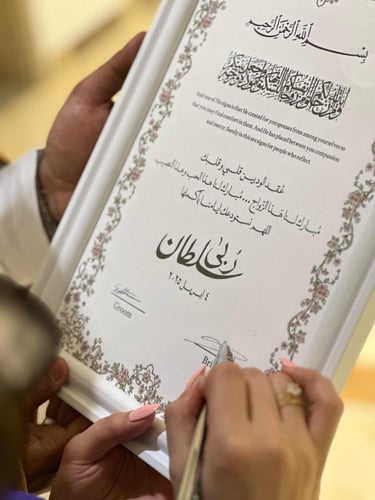 بسم الله الرحمن الرحيم
And one of His signs is that He created for you spouses from among yourselves so
that you may find comfort in them. And He has placed between you compassion
and mercy. Surely in this are signs for people who reflect.
عُقد الود بين قلبي وقلبك
مُبارك لنا هذا الزواج ... مُبارك لنا هذا الحب وهذا النصيب
اللهم نستودعك أيامنا بأكملها
رُبى
سلطان
٤ ابريل ٢٠٢٥
Groom
Bri